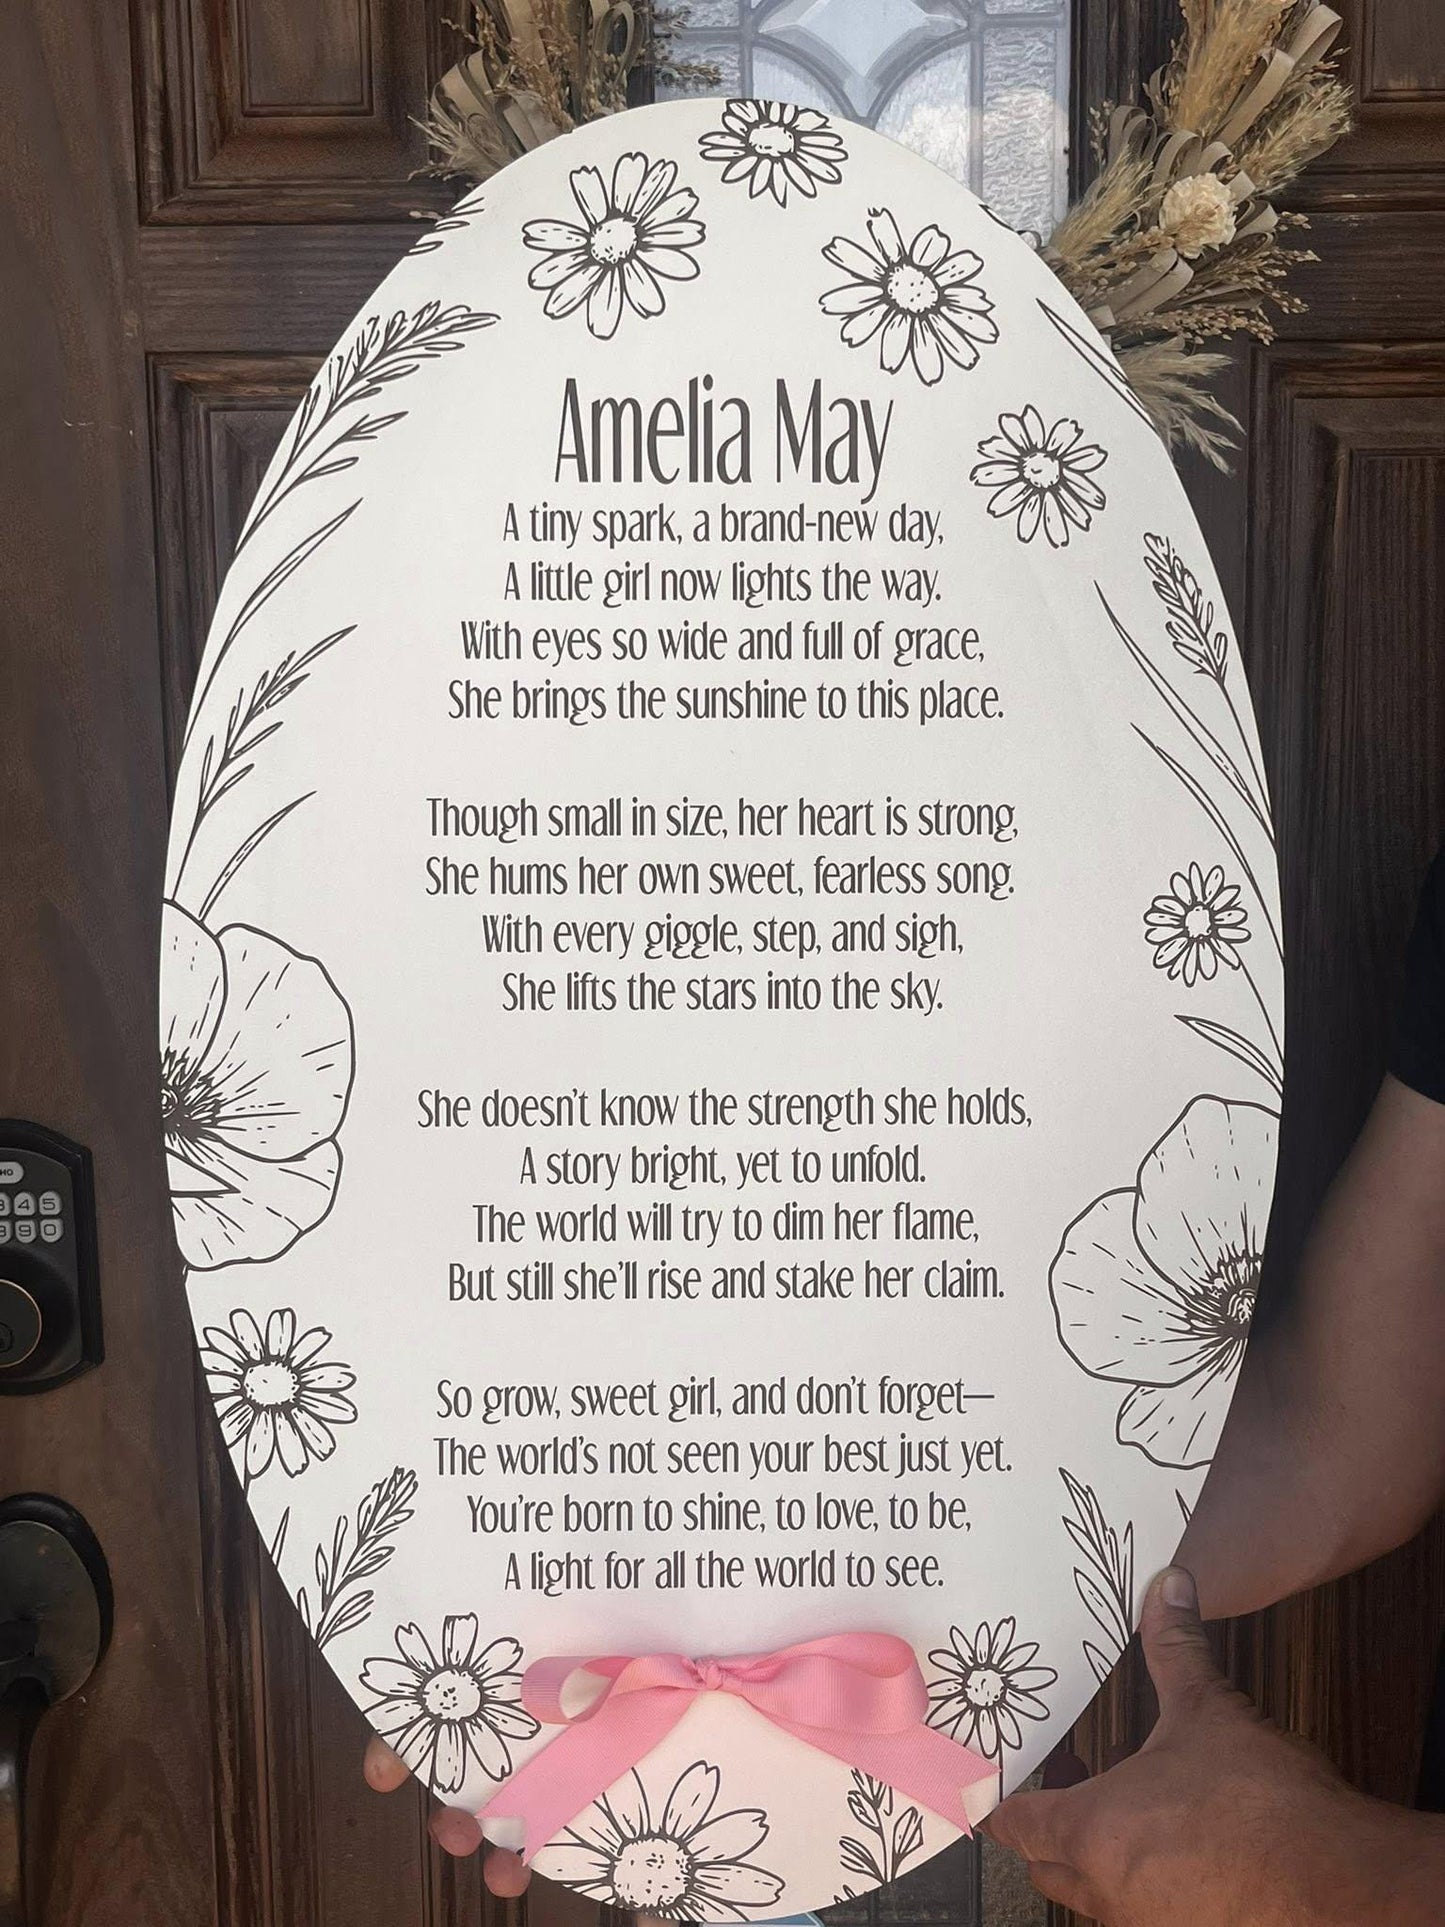 Amelia May
A tiny spark, a brand-new day,
A little girl now lights the way.
With eyes so wide and full of grace,
She brings the sunshine to this place.
Though small in size, her heart is strong,
She hums her own sweet, fearless song.
With every giggle, step, and sigh,
She lifts the stars into the sky.
She doesn't know the strength she holds,
A story bright, yet to unfold.
The world will try to dim her flame,
But still she'll rise and stake her claim.
So grow, sweet girl, and don't forget—
The world's not seen your best just yet.
You're born to shine, to love, to be,
A light for all the world to see.
4 5
9 0